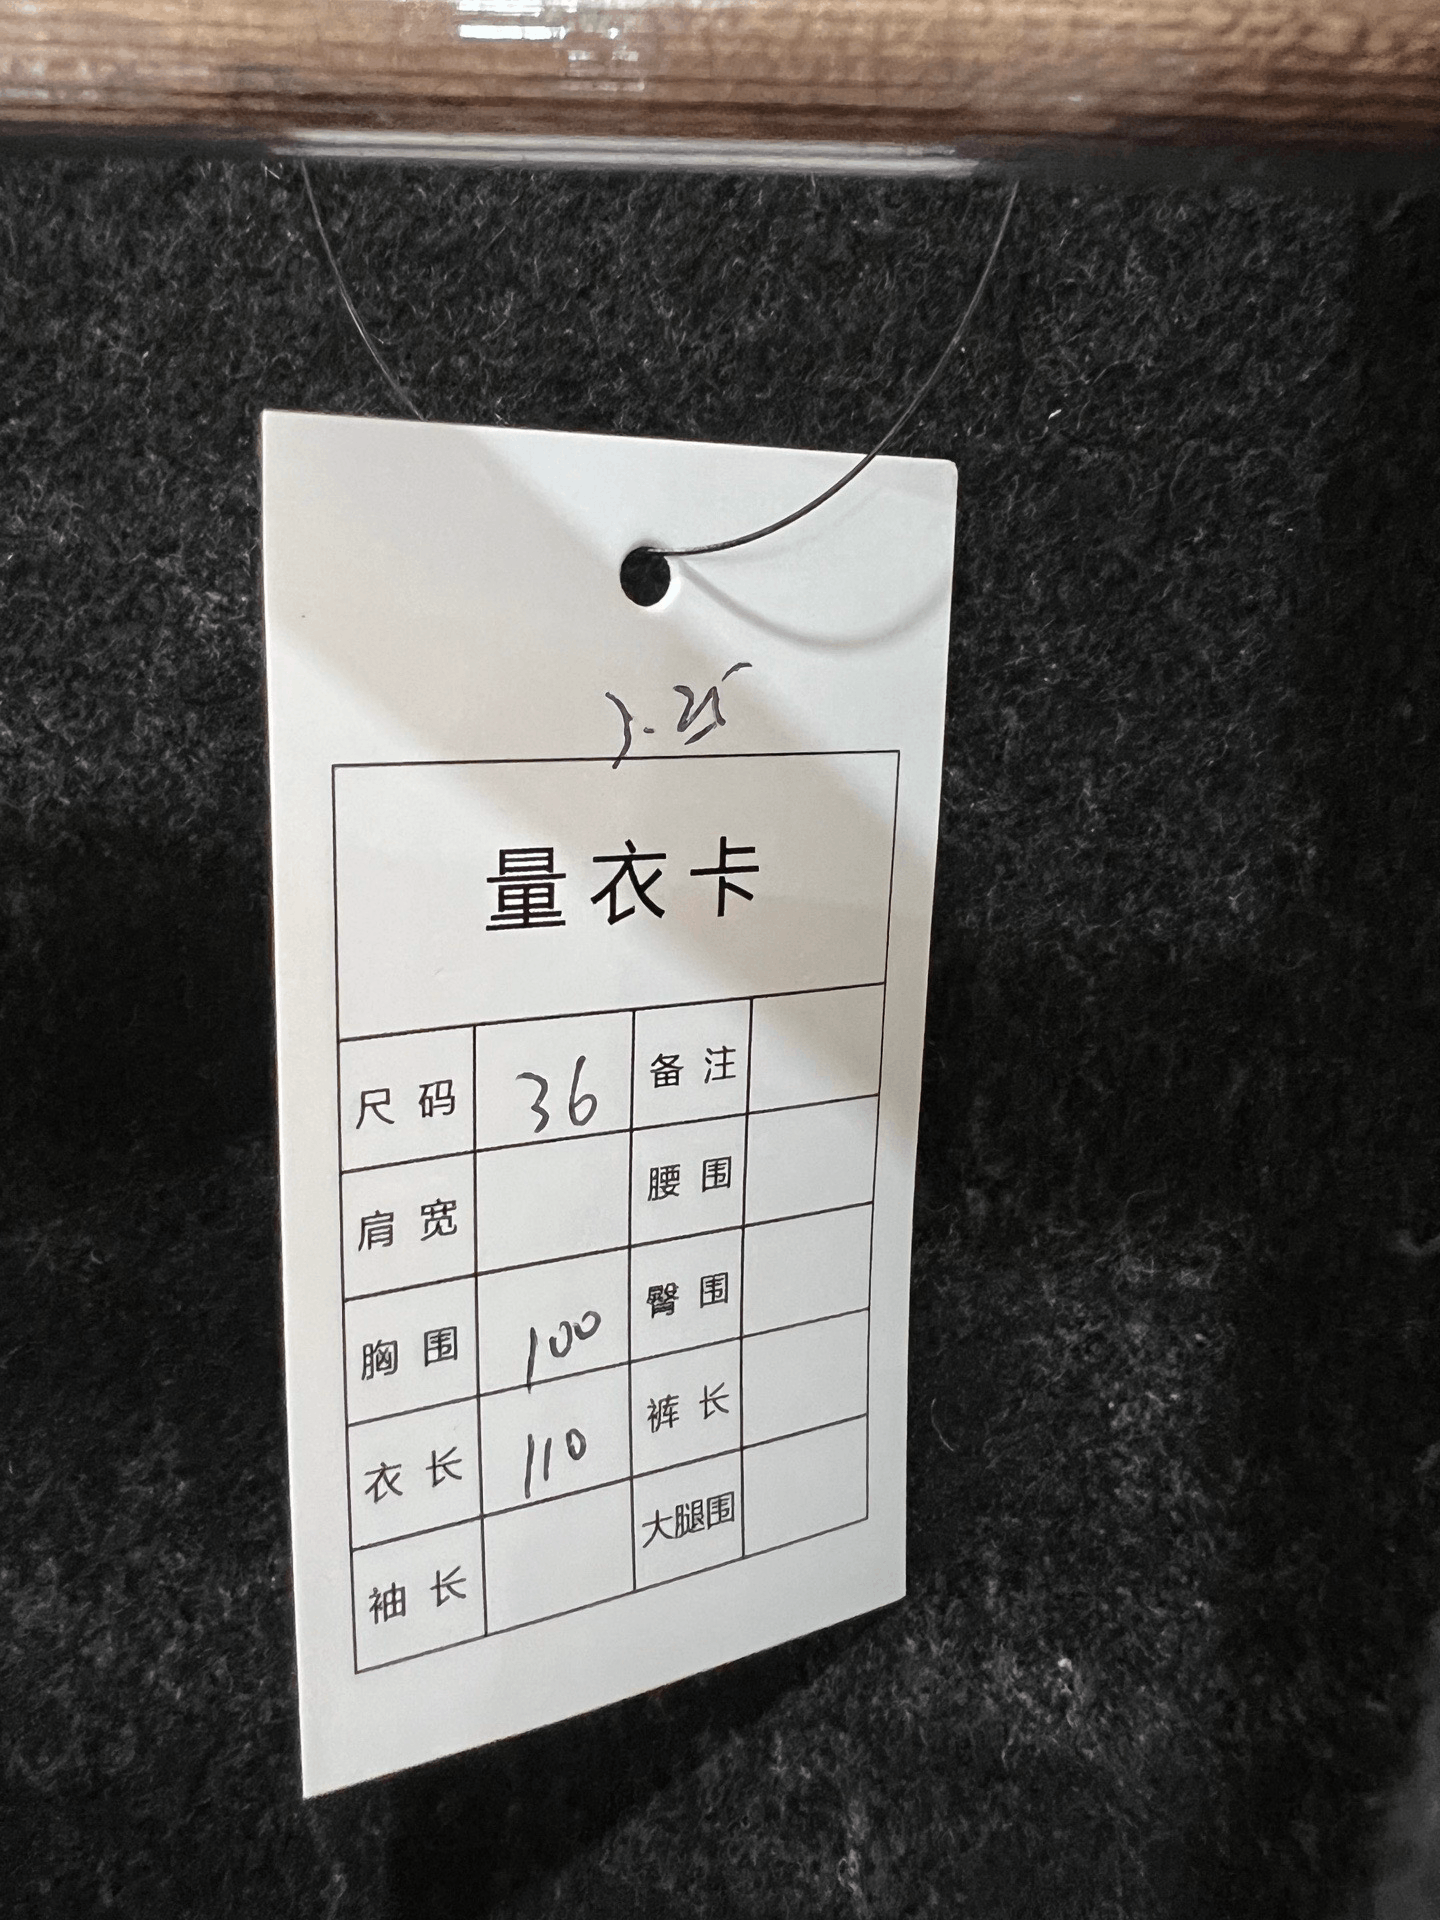 3.25
量衣卡
尺码 36 备注
肩宽 腰围
胸围 100 臀围
衣长 110 裤长
袖长 大腿围